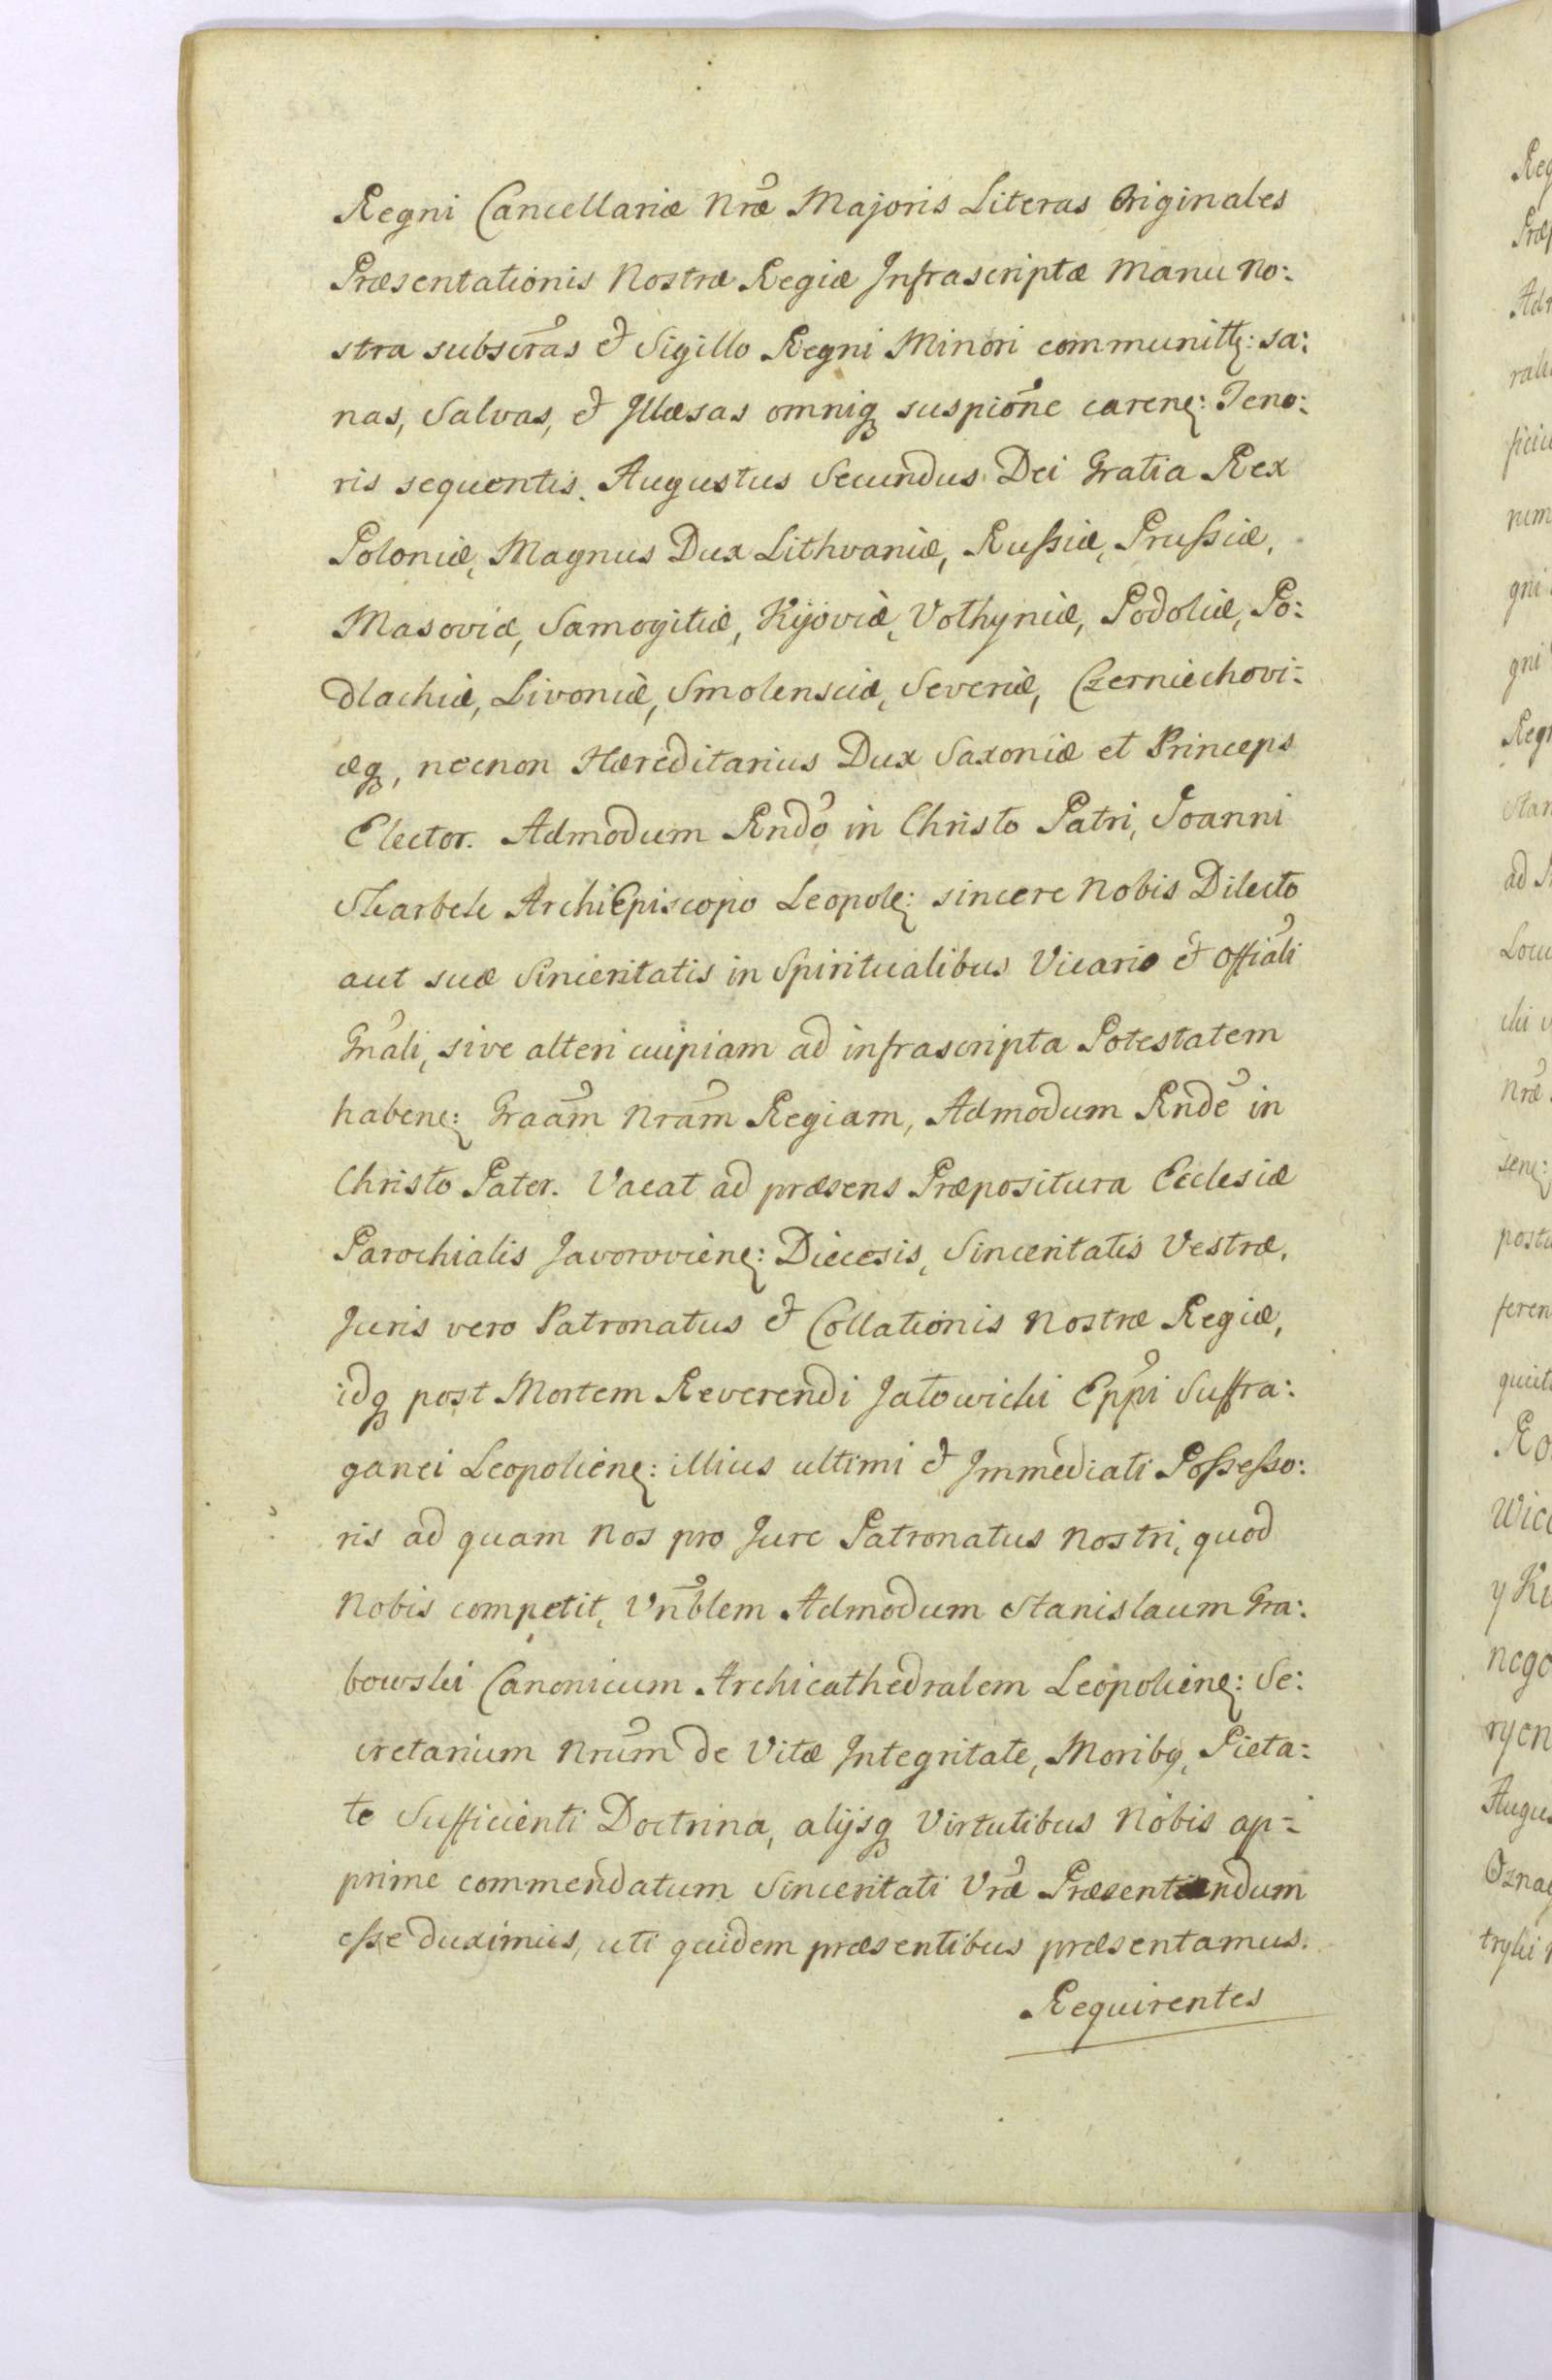 Regni Cancellariæ Nræ Majoris Literas Originales
Præsentationis Nostræ Regiæ Infrascriptæ Manu No:
stra subscras & Sigillo Regni Minori communitt: sa:
nas, Salvas, & Illæsas omniq suspione caren: Teno:
ris sequentis. Augustus Secundus Dei Gratia Rex
Poloniæ, Magnus Dux Lithvaniæ, Rußiæ, Prußiæ,
Masoviæ, Samogitiæ, Kijoviæ, Vołhyniæ, Podoliæ, Po:
dlachiæ, Livoniæ, Smolensciæ, Severiæ, Czerniechovi:
æq, necnon Hæreditarius Dux Saxoniæ et Princeps
Elector. Admodum Rndo in Christo Patri, Joanni
Skarbek ArchiEpiscopo Leopol: sincere Nobis Dilecto
aut suæ Sinceritatis in Spiritualibus Vicario & Offiali
Gnali, sive alteri cuipiam ad infrascripta Potestatem
haben: Graam Nram Regiam, Admodum Rnde in
Christo Pater. Vacat ad præsens Præpositura Ecclesiæ
Parochialis Javorovien: Diecesis, Sinceritatis Vestræ,
Juris vero Patronatus & Collationis Nostræ Regiæ,
idq post Mortem Reverendi Jałowicki Eppi Suffra:
ganei Leopolien: illius ultimi & Immediati Poßeßo:
ris ad quam Nos pro Jure Patronatus Nostri, quod
Nobis competit, Vnblem Admodum Stanislaum Gra:
bowski Canonicum Archicathedralem Leopolien: Se:
cretarium Nrum de Vitæ Integritate, Moribq, Pieta:
te Sufficienti Doctrina, alijsq Virtutibus Nobis ap:
prime commendatum Sinceritati Vræ Præsentandum
eße duximus, uti quidem præsentibus præsentamus.
Requirentes